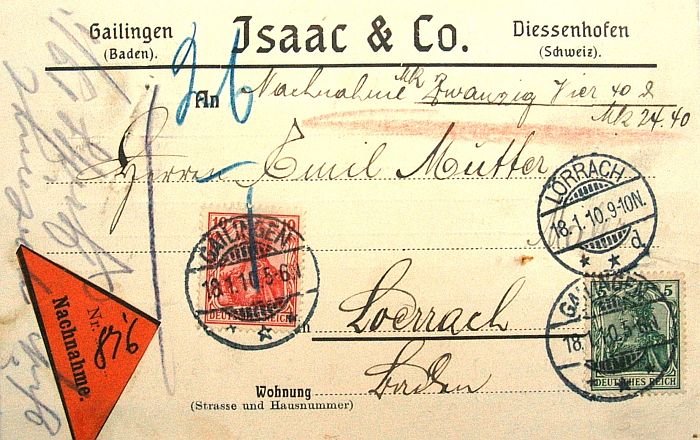 Gailingen
(Baden).
Isaac & Co.
Diessenhofen
(Schweiz).
26
An
Nachnahme Mk Zwanzig Vier 40 ₰
Mk 24.40
Herrn Emil Mütter
LÖRRACH
18.1.10.9-10N.
d.
10 10
GAILINGEN
18.1.10.5-6N
DEUTSCHES REICH
5
GAILINGEN
18.1.10.5-6N
DEUTSCHES REICH
in
Loerrach
Baden
Nr. 876
Nachnahme.
Wohnung
(Strasse und Hausnummer)